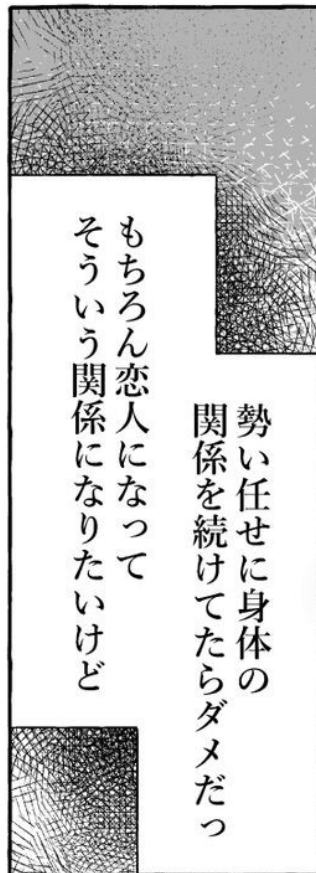 勢い任せに身体の
関係を続けてたらダメだっ
もちろん恋人になって
そういう関係になりたいけど